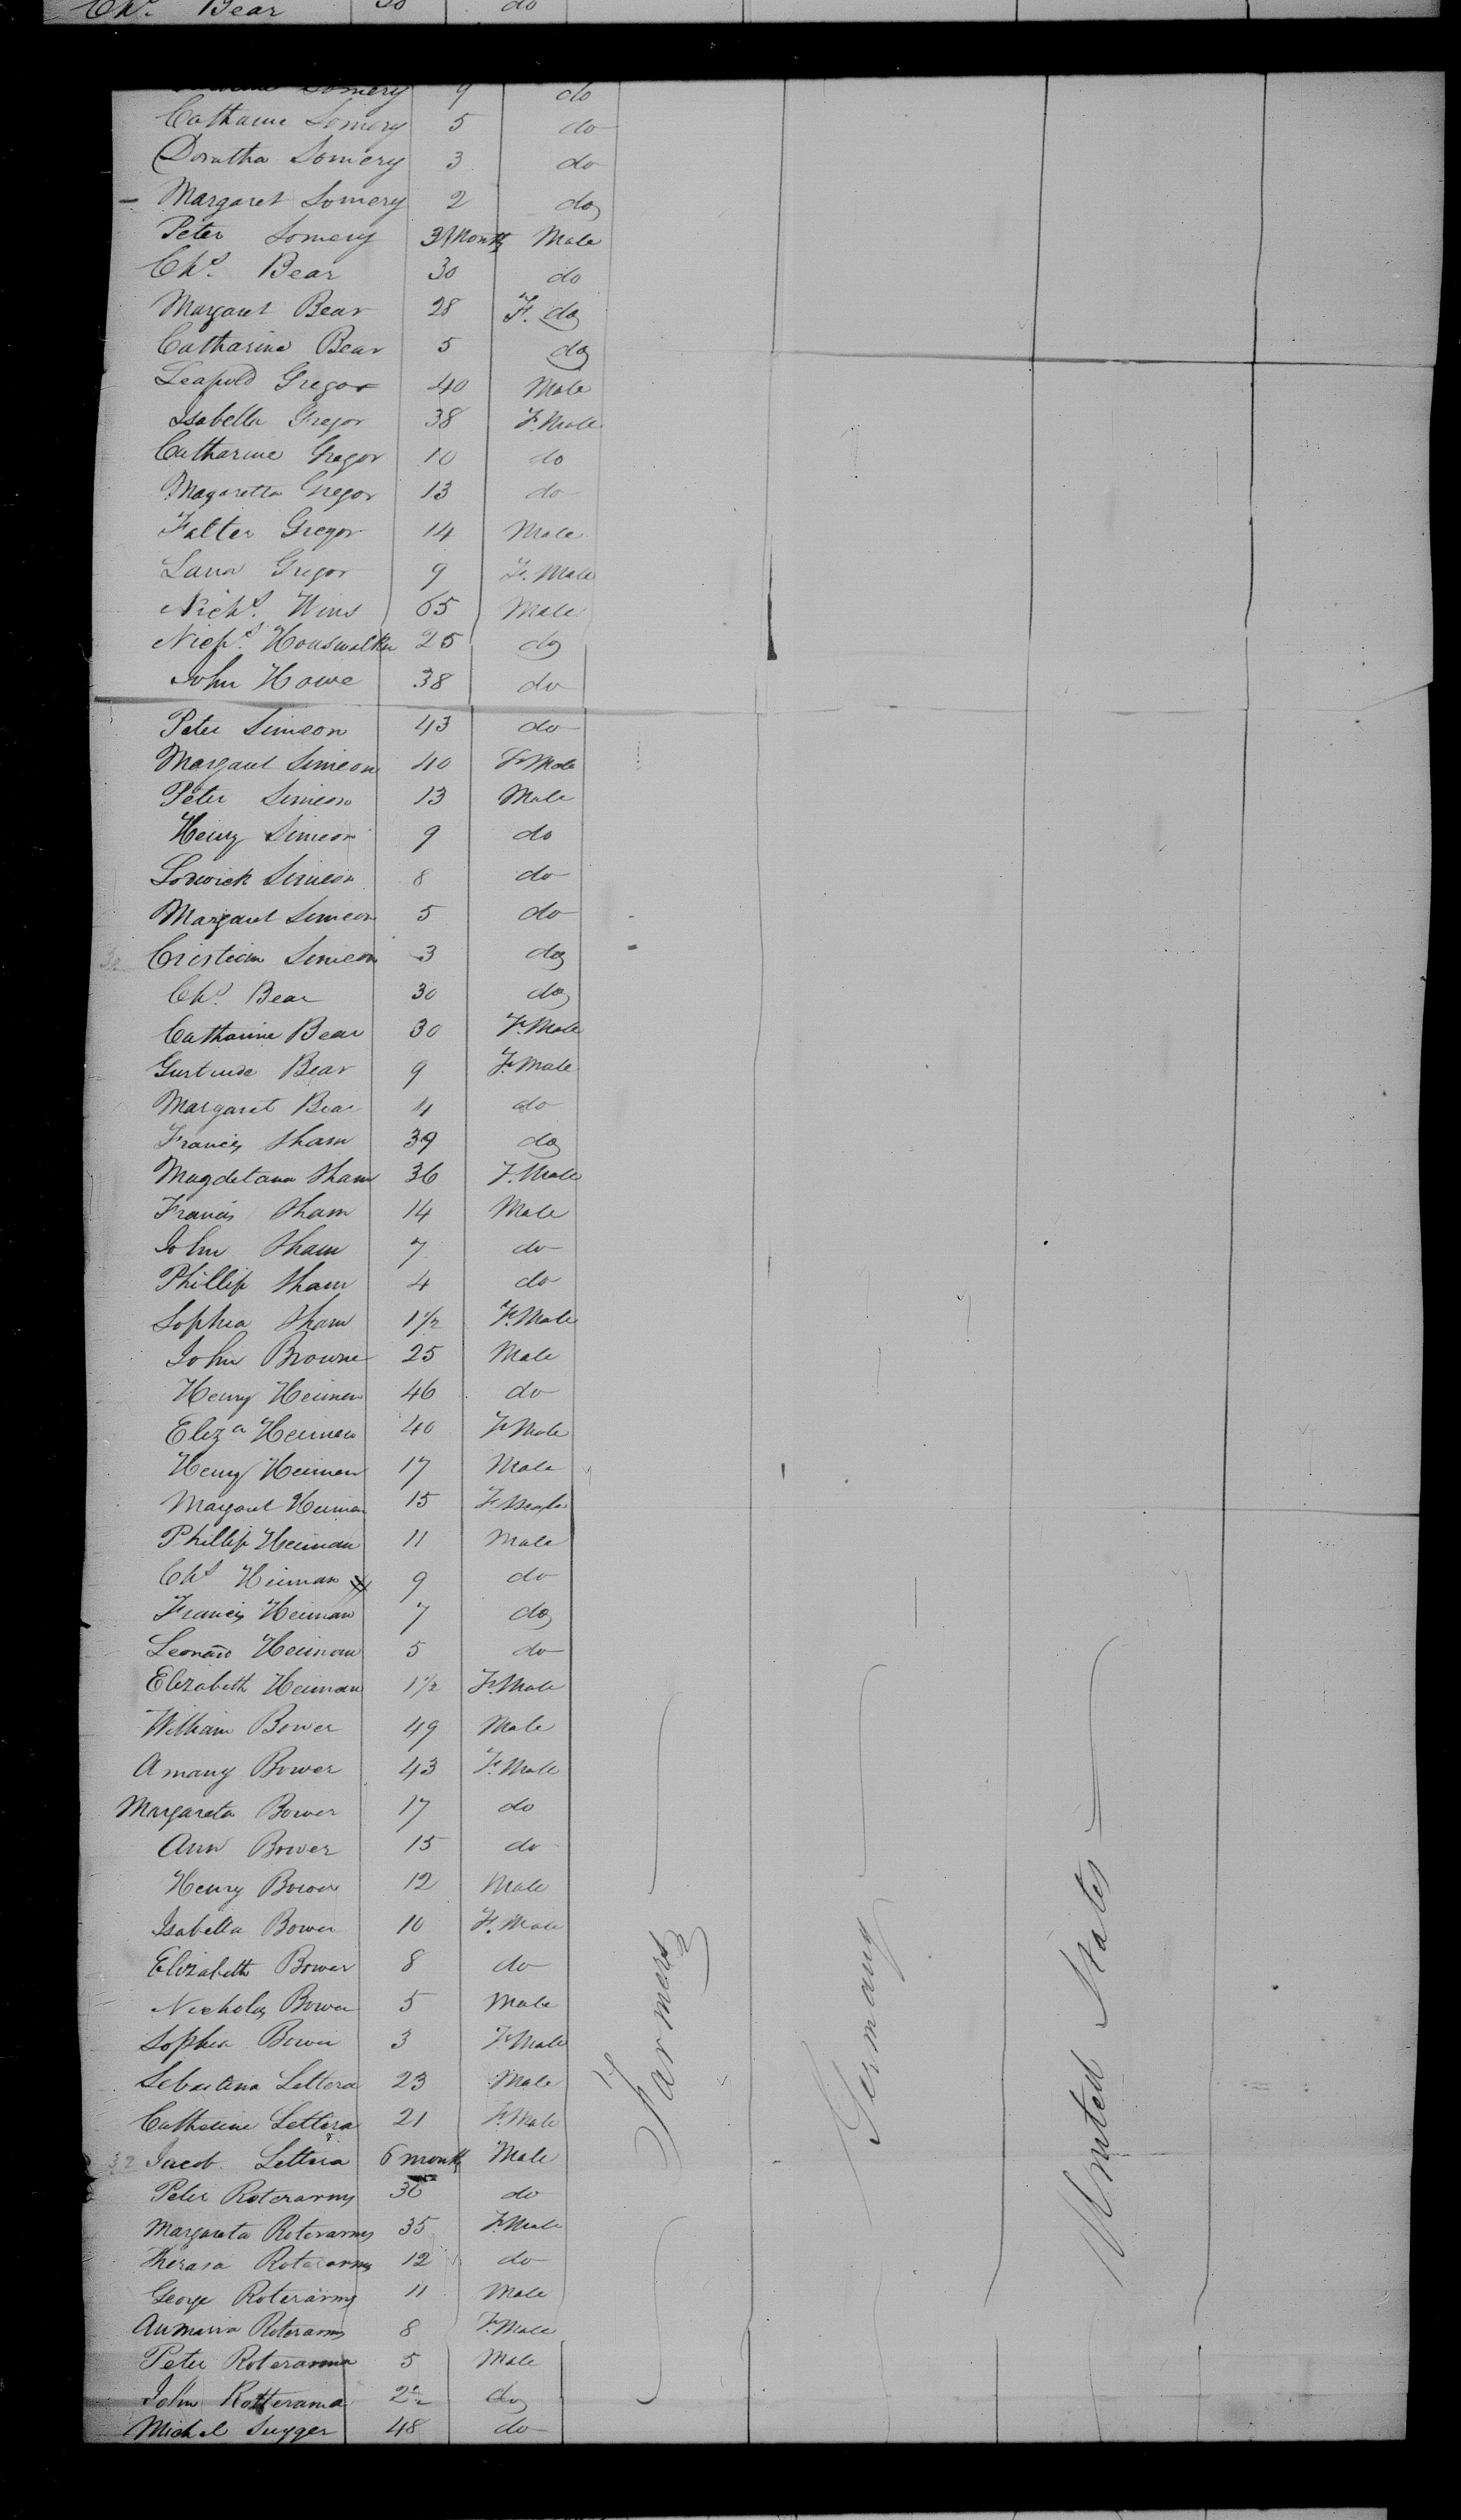 Chs. Bear 30 do
Somery 9 do
Catharine Somery 5 do
Doratha Somery 3 do
Margaret Somery 2 do
Peter Somery 3 Months Male
Chs. Bear 30 do
Margaret Bear 28 F. do
Catharine Bear 5 do
Leapold Gregor 40 Male
Isabella Gregor 38 F. Male
Catharine Gregor 10 do
Magaretta Gregor 13 do
Falter Gregor 14 Male
Lana Gregor 9 F. Male
Nichs. Wins 65 Male
Nichs. Houswalker 25 do
John Howe 38 do
Peter Simeon 43 do
Margaret Simeon 40 F Male
Peter Simeon 13 Male
Henry Simeon 9 do
Lodwick Simeon 8 do
Margaret Simeon 5 do
Cristian Simeon 3 do
Chs. Bear 30 do
Catharine Bear 30 F. Male
Gurtrude Bear 9 F. Male
Margaret Bear 4 do
Francis Sham 39 do
Magdelana Sham 36 F. Male
Francis Sham 14 Male
John Sham 7 do
Phillip Sham 4 do
Sophia Sham 1 1/2 F. Male
John Browne 25 Male
Henry Heiman 46 do
Eliza Heiman 40 F Male
Henry Heiman 17 Male
Margaret Heiman 15 F. Male
Phillip Heiman 11 Male
Chs Heiman 9 do
Francis Heiman 7 do
Leonard Heiman 5 do
Elizabeth Heiman 1 1/2 F. Male
William Bower 49 Male
Amany Bower 43 F. Male
Margareta Bower 17 do
Ann Bower 15 do
Henry Bower 12 Male
Isabella Bower 10 F. Male
Elizabeth Bower 8 do
Nicholas Bower 5 Male
Sophia Bower 3 F Male
Sebastina Lettera 23 Male
Catherine Lettera 21 F. Male
32 Jacob Lettera 6 months Male
Peter Roterarms 36 do
Margareta Roterarms 35 F. Male
Therasa Roterarms 12 do
George Roterarms 11 Male
Anmaria Roterarms 8 F. Male
Peter Roterarma 5 Male
John Rotterama 2 1/2 do
Michel Suyger 48 do
Farmers
Germany
United States